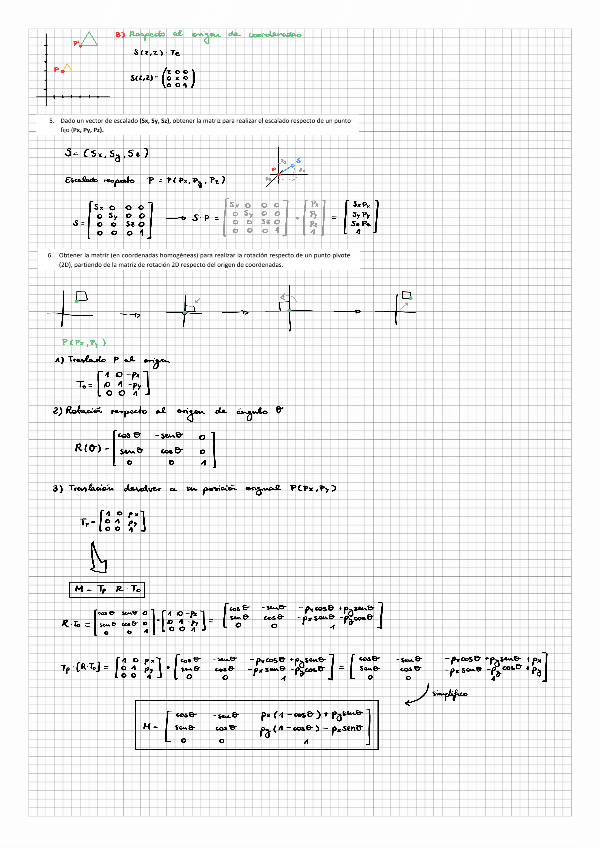 B) Respecto al origen de coordenadas
P'
P
S(2,2) · Te
S(2,2) = (2 0 0
0 2 0
0 0 1)
5. Dado un vector de escalado (Sx, Sy, Sz), obtener la matriz para realizar el escalado respecto de un punto
fijo (Px, Py, Pz).
S = (Sx, Sy, Sz)
Escalado respecto P = P(Px, Py, Pz)
S = [Sx 0 0 0
0 Sy 0 0
0 0 Sz 0
0 0 0 1]
→ S · P = [Sx 0 0 0
0 Sy 0 0
0 0 Sz 0
0 0 0 1]
· [Px
Py
Pz
1]
= [Sx Px
Sy Py
Sz Pz
1]
6. Obtener la matriz (en coordenadas homogéneas) para realizar la rotación respecto de un punto pivote
(2D), partiendo de la matriz de rotación 2D respecto del origen de coordenadas.
P(Px, Py)
1) Traslado P al origen
To = [1 0 -px
0 1 -py
0 0 1]
2) Rotación respecto al origen de ángulo θ
R(θ) = [cosθ -senθ 0
senθ cosθ 0
0 0 1]
3) Translación devolver a su posición original P(Px, Py)
Tp = [1 0 px
0 1 py
0 0 1]
M = Tp R · To
R · To = [cosθ senθ 0
senθ cosθ 0
0 0 1]
· [1 0 -px
0 1 py
0 0 1]
= [cosθ -senθ -pxcosθ + pysenθ
senθ cosθ -pxsenθ -pycosθ
0 0 1]
Tp · (R·To) = [1 0 px
0 1 py
0 0 1]
· [cosθ -senθ -pxcosθ + pysenθ
senθ cosθ -pxsenθ -pycosθ
0 0 1]
= [cosθ -senθ -pxcosθ + pysenθ + px
senθ cosθ pxsenθ -pycosθ + py
0 0 1]
simplifico
M = [cosθ -senθ px(1-cosθ) + pysenθ
senθ cosθ py(1-cosθ) - pxsenθ
0 0 1]